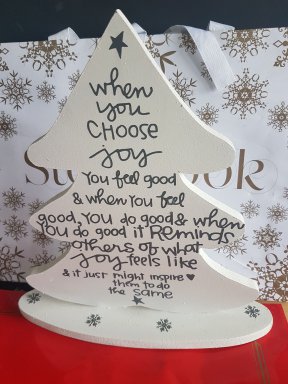 when
you
CHOOSE
joy
YOU feel good
& when YOU feel
good, YOU do good & when
YOU do good it Reminds
others of what
joy feels like
& it just might inspire
them to do
the same